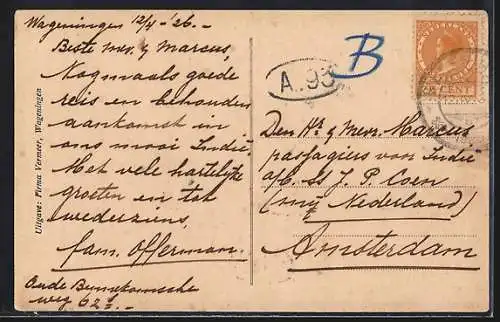 Wageningen 12/4 '26.-
Beste mvr. & Marcus,
Nogmaals goede
reis en behouden
aankomst in
ons mooi Indië.
Met vele hartelijke
groeten en tot
wederziens,
fam. Offerman.
Oude Bennekomsche
weg 62
Uitgave: Firma Vermeer, Wageningen
B
A..93
CENT
Den Hr & Mevr. Marcus
passagiers voor Indië
a/b. ss J. P. Coen
(mij Nederland)
Amsterdam